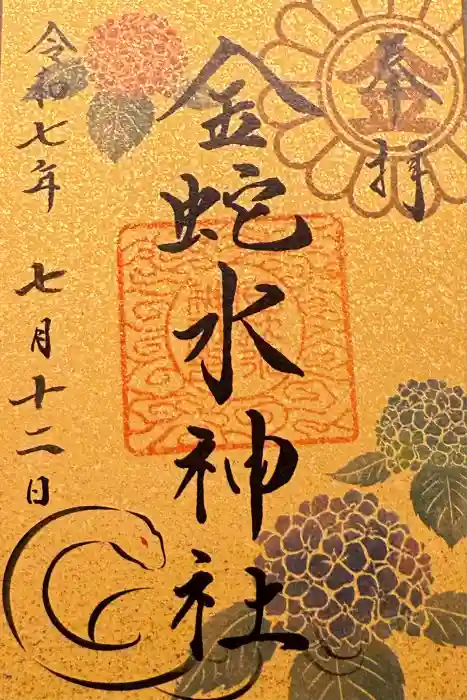 奉拝
金蛇水神社
令和七年 七月十二日
金